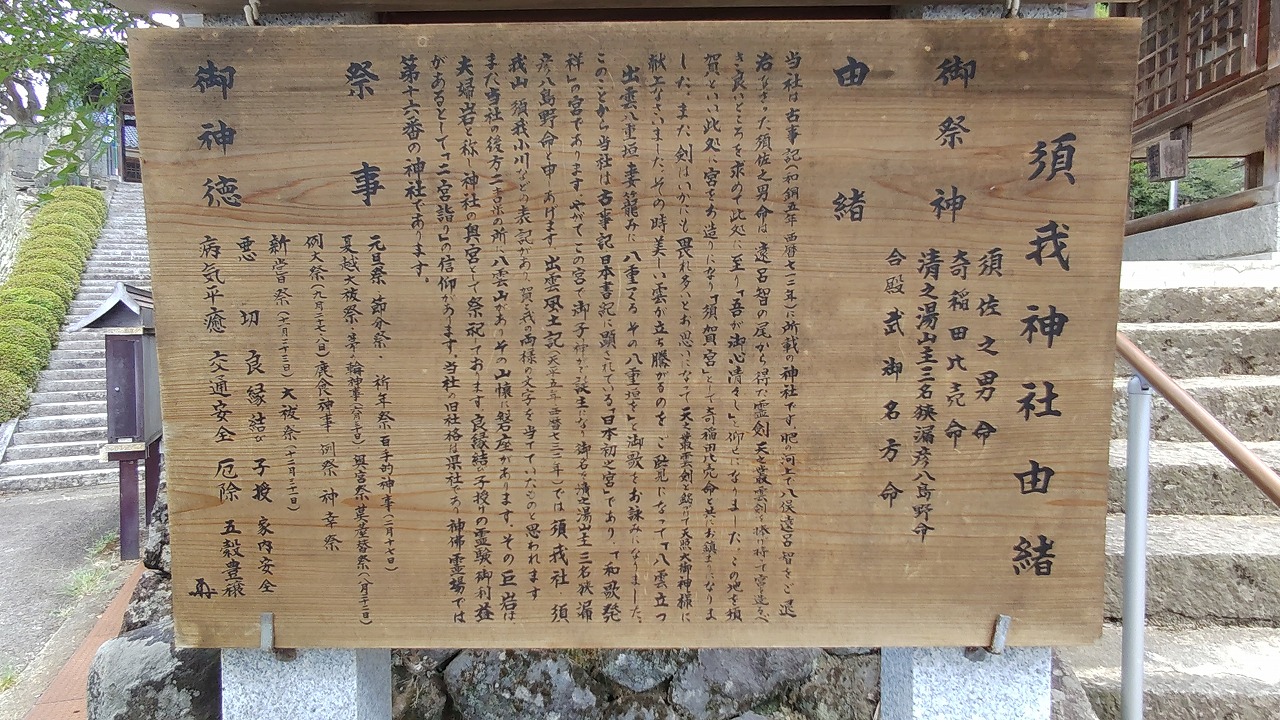 須我神社由緒
御祭神
須佐之男命
奇稲田比売命
清之湯山主三名狭漏彦八島野命
合殿 武御名方命
由緒
当社は古事記(和銅五年 西暦七一二年)に所載の神社です。肥河上で八俣遠呂智をご退
治なさった須佐之男命は 遠呂智の尾から得た霊剣 天之叢雲剣を捧げ持って宮造るべ
き良いところを求めて此処に至り「吾が御心清々し」と仰せになりました。この地を須
賀といい此処に宮をお造りになり「須賀宮」として奇稲田比売命と共にお鎮まりになりま
した。また 剣はいかにも畏れ多いとお思いになって天之叢雲剣と銘けて天照大御神様に
献上なさいました。その時美しい雲が立ち騰がるのをご覧になって「八雲立つ
出雲八重垣 妻籠みに 八重垣つくる その八重垣を」と御歌をお詠みになりました。
このことから当社は古事記 日本書記に顕されている「日本初之宮」であり、「和歌発
祥」の宮であります。やがてこの宮で御子神が誕生になり御名を清之湯山主三名狭漏
彦八島野命と申しあげます。出雲風土記(天平五年 西暦七三三年)では 須我社 須
我山 須我小川などの表記があり 賀と我の両様の文字を当てていたものと思われます
また当社の後方二粁米の所に八雲山があり その山懐に磐座があります。その巨岩は
夫婦岩と称へ神社の奥宮として祭祀ております。良縁結び子授りの霊験御利益
があるとして「二宮詣り」の信仰があります。当社の旧社格は県社であり 神佛霊場では
第十六番の神社であります。
祭事
元旦祭 節分祭、祈年祭 百手的神事(二月十七日)
夏越大祓祭・茅の輪神事(六月三十日)奥宮祭 磐座祭(八月二十二日)
例大祭(九月二十七、八日)鹿食神事 例祭 神幸祭
新嘗祭(十一月二十三日)大祓祭(十二月三十一日)
御神徳
悪切 良縁結び 子授 家内安全
病気平癒 交通安全 厄除 五穀豊穣